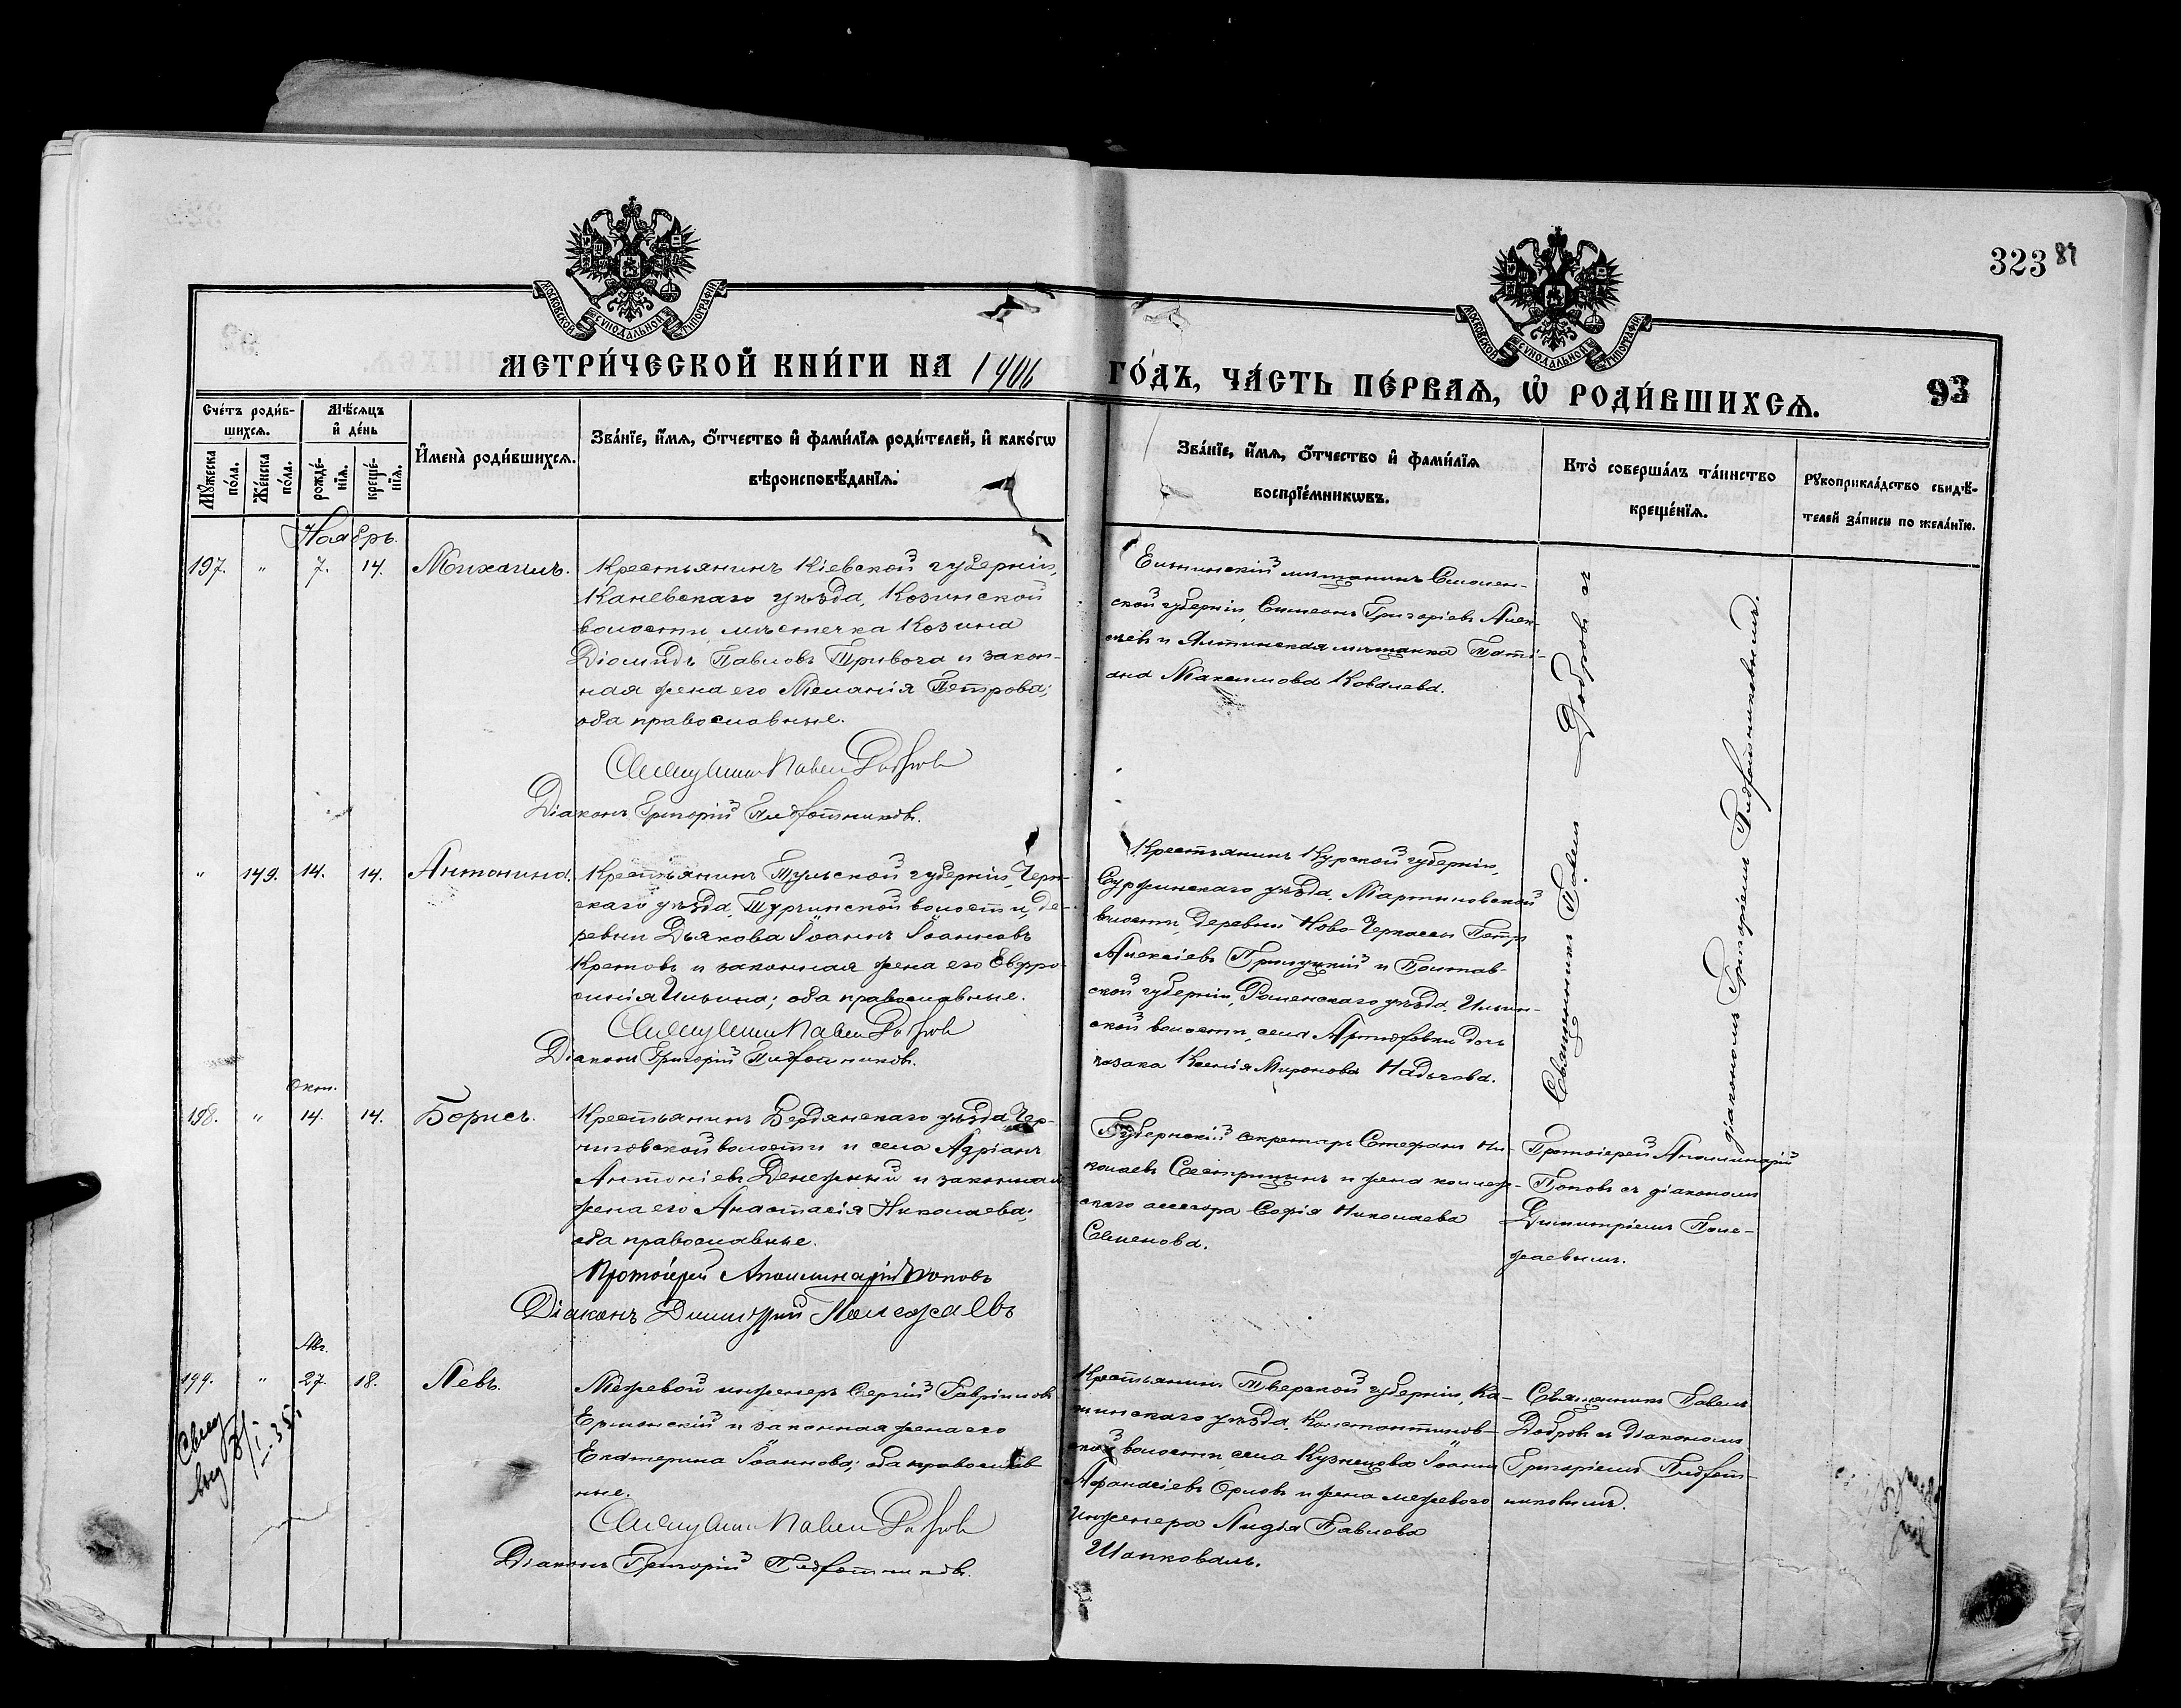 323 84
МОСКОВСКОЙ СУНОДАЛЬНОЙ ТИПОГРАФІИ
МОСКОВСКОЙ СУНОДАЛЬНОЙ ТИПОГРАФІИ
МЕТРИ́ЧЕСКОЙ КНИ́ГИ НА 1906 ГО́ДЪ, ЧА́СТЬ ПЕ́РВАѦ, Ѡ҆ РОДИ́ВШИХСѦ. 93
Сче́тъ роди́в-
шихсѧ.
Мѣ́сѧцъ
и҆ де́нь
Мꙋ́жеска по́ла.
Же́нска по́ла.
рожде́-
нїѧ.
креще́-
нїѧ.
И҆мена̀ роди́вшихсѧ.
Зва́нїе, и҆́мѧ, ѻ҆́тчество и҆ фами́лїѧ роди́телей, и҆ како́гѡ
вѣроисповѣ́данїѧ.
Зва́нїе, и҆́мѧ, ѻ҆́тчество и҆ фами́лїѧ
воспрїе́мникѡвъ.
Кто̀ соверша́лъ та́инство
креще́нїѧ.
Рꙋкоприкла́дство свидѣ́-
телей за́писи по жела́нїю.
Ноябрь.
197. " 7. 14. Михаилъ.
Крестьянинъ Кіевской губерніи,
Каневскаго уѣзда, Козинской
волости, мѣстечка Козина
Діомидъ Павловъ Тривога и закон-
ная жена его Меланія Петрова;
оба православные.
Священникъ Павелъ Добровъ
Діаконъ Григорій
Ельнинскій мѣщанинъ Смолен-
ской губерніи, Симеонъ Григоріевъ Алек-
сѣевъ и Ялтинская мѣщанка Тати-
ана Максимова Ковалева.
Священникъ Павелъ Добровъ съ
діакономъ Григоріемъ
" 149. 14. 14. Антонина.
Крестьянинъ Тульской губерніи, Черн-
скаго уѣзда, волости, де-
ревни Дьякова Іоаннъ Іоанновъ
Кретовъ и законная жена его Евфро-
синія Ильина; оба православные.
Священникъ Павелъ Добровъ
Діаконъ Григорій
Крестьянинъ Курской губерніи,
уѣзда, Мартыновской
волости, деревни Ново-Черкассы Петръ
Алексіевъ Прилуцкій и Полтав-
ской губерніи, Роменскаго уѣзда,
ской волости, села дочь
козака Ксенія Миронова
Окт.
198. " 14. 14. Борисъ.
Крестьянинъ Бердянскаго уѣзда, Чер-
ниговской волости и села Адріанъ
Антоніевъ Денежный и законная
жена его Анастасія Николаева;
оба православные.
Протоіерей Аполлинарій Поповъ
Діаконъ Димитрій Полежаевъ
Губернскій секретарь Стефанъ Ни-
колаевъ Сестрицынъ и жена коллеж-
скаго ассесора Софія Николаева
Семенова.
Протоіерей Аполлинарій
Поповъ съ діакономъ
Димитріемъ Поле-
жаевымъ.
Авг.
199. " 27. 18. Левъ.
Межевой инженеръ Сергій Гавріиловъ
и законная жена его
Екатерина Іоаннова; оба православ-
ные.
Священникъ Павелъ Добровъ
Діаконъ Григорій
Крестьянинъ Тверской губерніи, Ка-
шинскаго уѣзда, Константинов-
ской волости, села Кузнецова Іоаннъ
Афанасіевъ Орловъ и жена межевого
инженера Лидія Павлова
Шапковалъ.
Священникъ Павелъ
Добровъ съ діакономъ
Григоріемъ